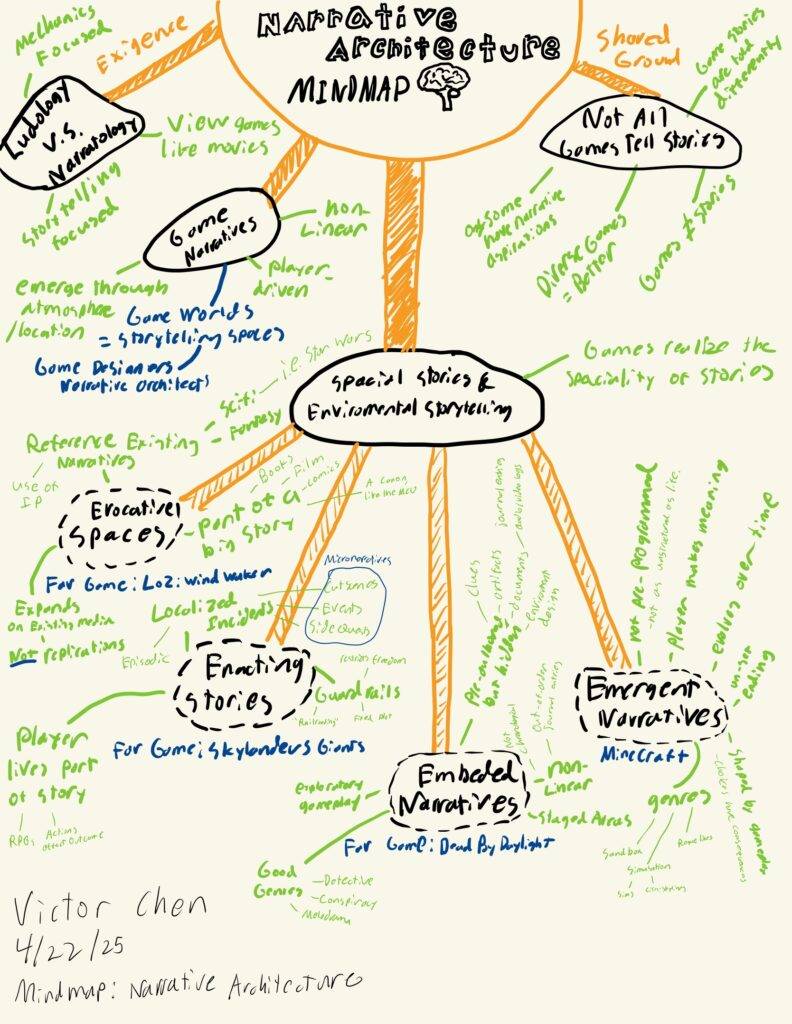 Narrative
Architecture
MINDMAP
Exigence
Shared
Ground
Mechanics
Focused
Ludology
v.s.
Narratology
View games
like movies
Storytelling
focused
Game
Narratives
Non-
Linear
Player-
driven
emerge through
/location
Game Worlds
= Storytelling Spaces
Game Designers
Narrative architects
Not All
Games Tell Stories
Game stories
are told
differently
Some
have narrative
aspirations
Diverse Games
= Better
Games ≠ Stories
Spacial Stories &
Enviromental Storytelling
Games realize the
Spaciality of Stories
Evocative
Spaces
Reference Existing
Narratives
Use of
IP
Scifi
Fantasy
i.e. Star Wars
part of a
big Story
Books
Film
comics
A Canon
like the MCU
For Game: LoZ: Wind Waker
Expands
on Existing media
Not replications
Enacting
Stories
Localized
Incidents
Episodic
Micronarratives
Cutscenes
Events
Side Quests
Guard rails
restrain freedom
"Railroading"
Fixed plot
For Game: Skylanders Giants
Player
lives part
of story
RPGs
Actions
affect outcome
Embeded
Narratives
Pre-authored
but hidden
clues
artifacts
documents
environment
design
journal entries
audio/video logs
Non-
Linear
Not
chronological
Out-of-order
journal entries
Staged Areas
exploratory
gameplay
For Game: Dead By Daylight
Good
Genres
-Detective
-Conspiracy
Melodrama
Emergent
Narratives
Not Pre-Programmed
-not as unstructured as life.
Player makes meaning
evolves over time
ending
Shaped by gameplay
-choices have consequences
Minecraft
genres
Sandbox
Simulation
Sims
Roguelikes
Victor Chen
4/22/25
Mindmap: Narrative Architecture